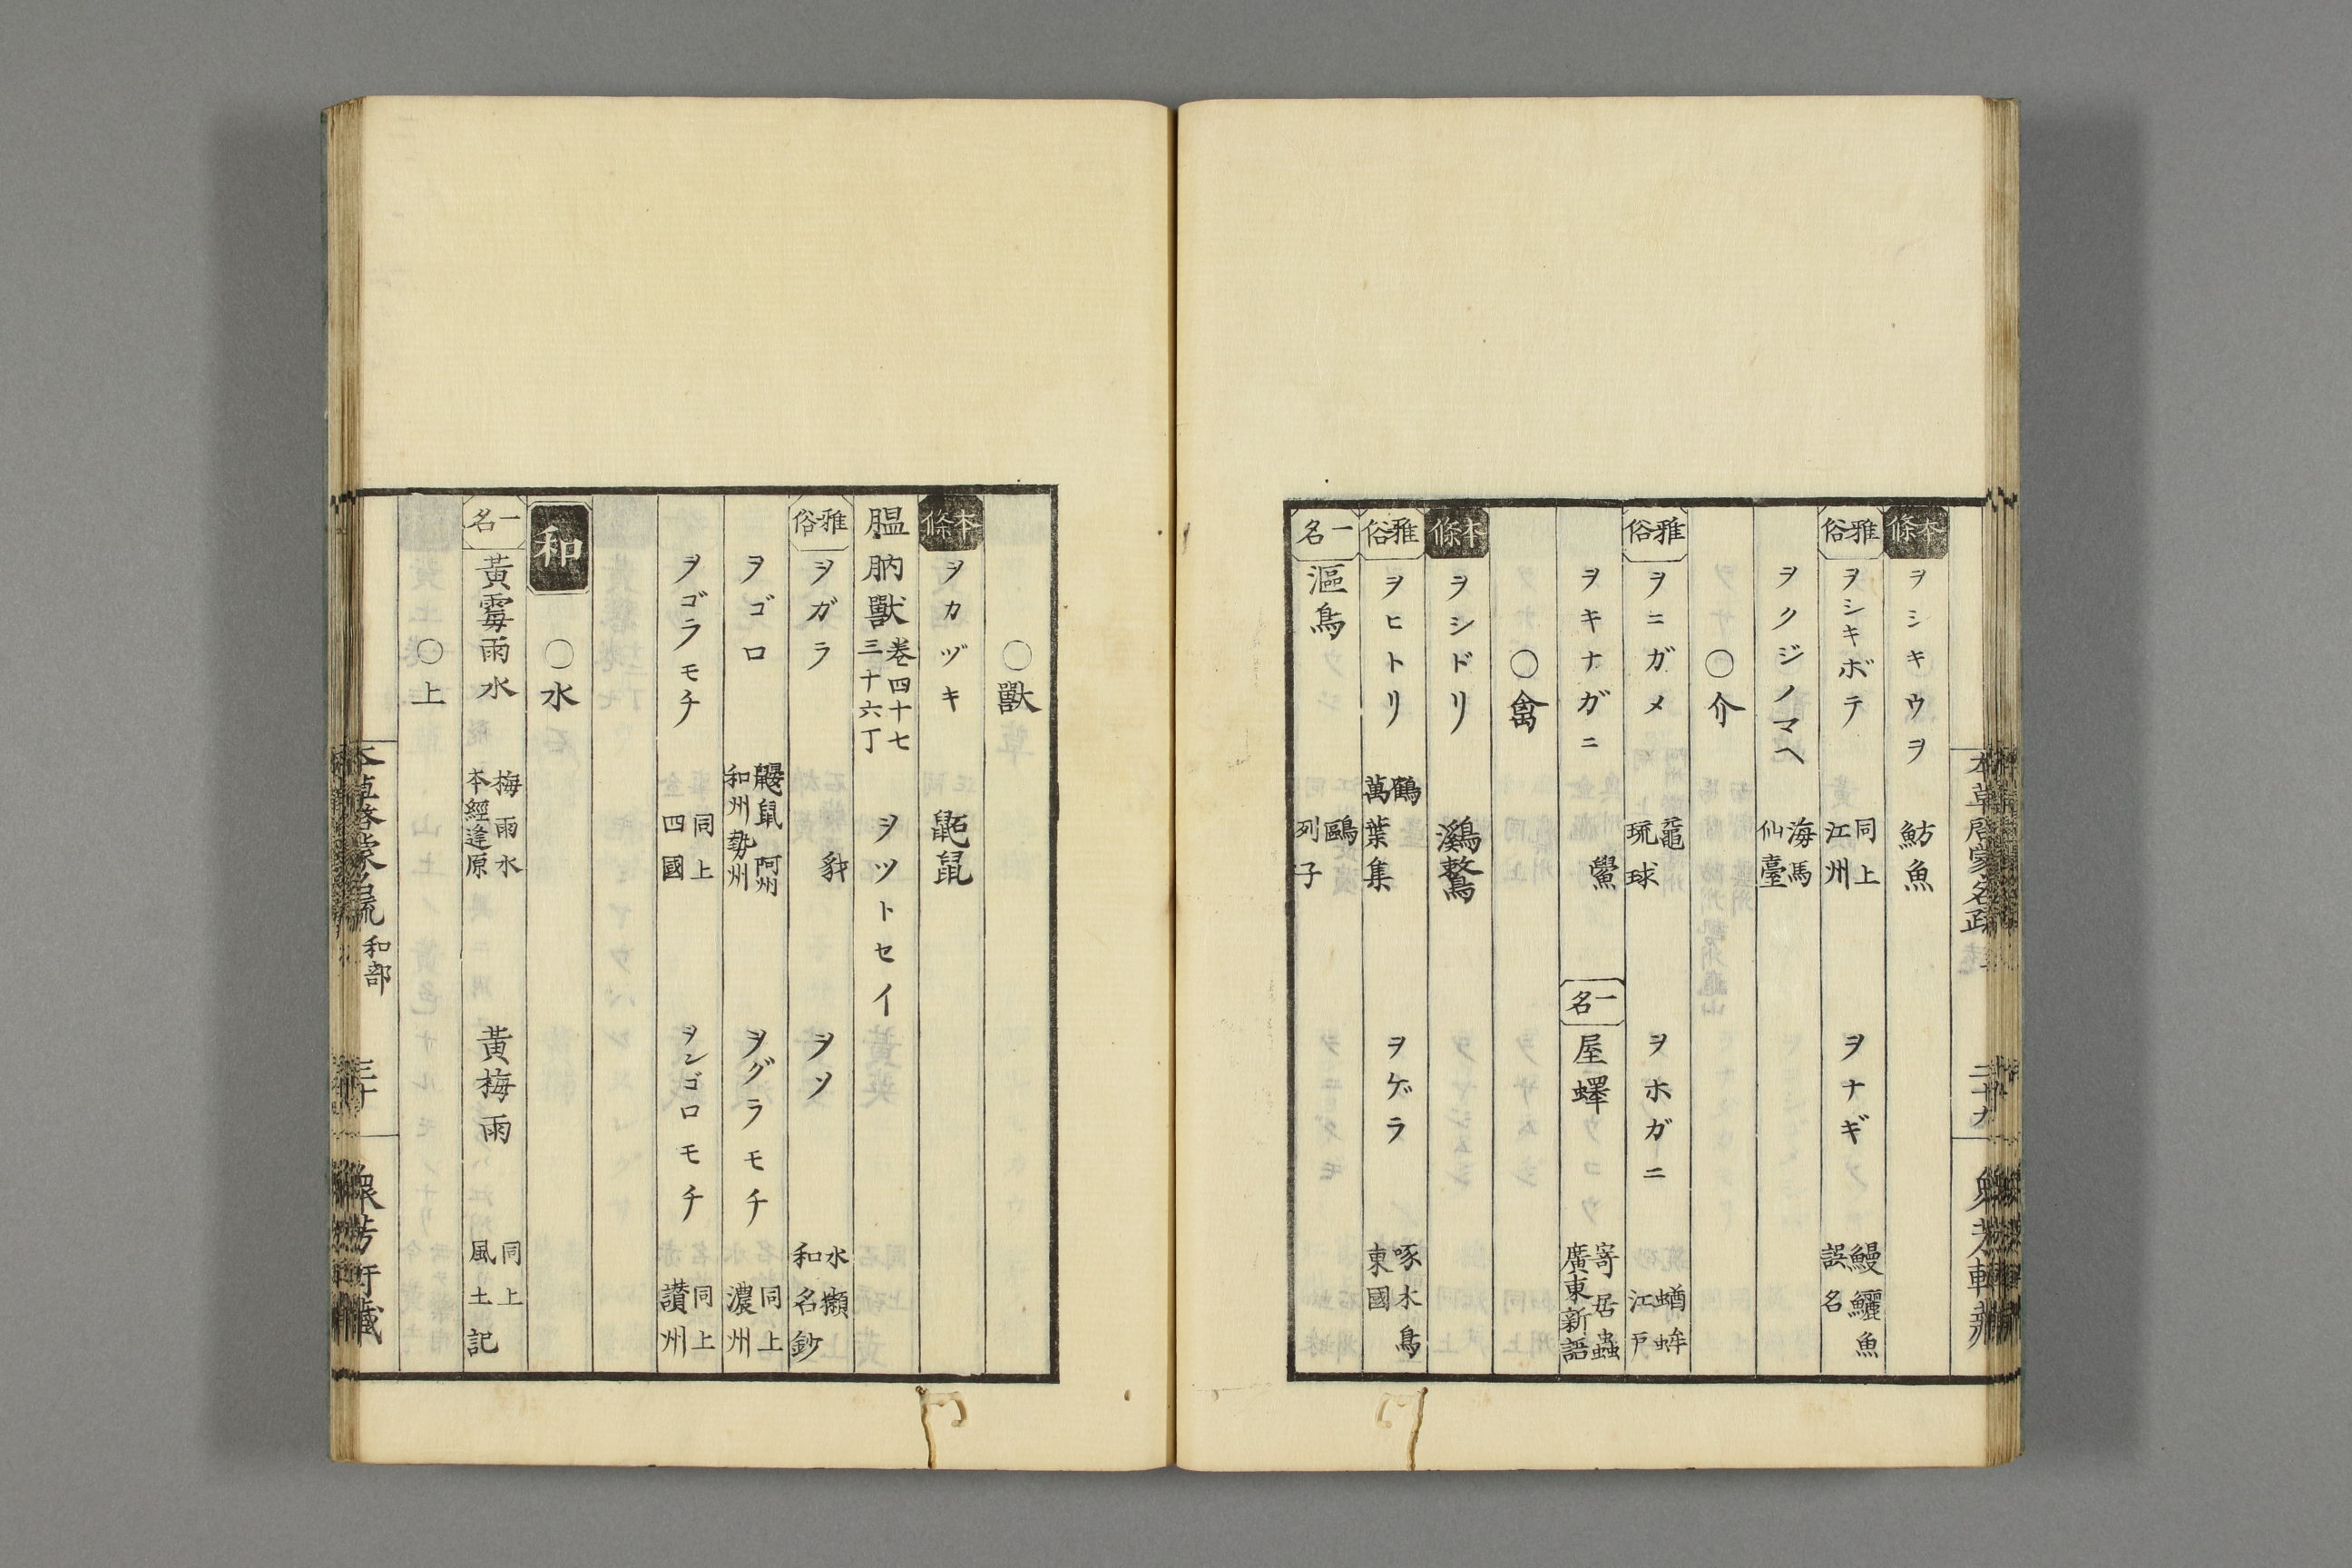 本條 ヲシキウヲ 魴魚
雅俗 ヲシキボテ 同上 江州 ヲナギ 鰻鱺魚 誤名
ヲクジノマヘ 海馬 仙臺
〇介
雅俗 ヲニガメ 黿 琉球 ヲホガニ 蝤蛑 江戸
ヲキナガニ 鱟 一名 屋蠌 寄居蟲 廣東新語
〇禽
本條 ヲシドリ 鸂鶒
雅俗 ヲヒトリ 鶴 萬葉集 ヲゲラ 啄木鳥 東國
一名 漚鳥 鷗 列子
本草啓蒙名疏 二十九
〇獸
本條 ヲカヅキ 鼫鼠
膃肭獸 卷四十七 三十六丁 ヲツトセイ
雅俗 ヲガラ 豺 ヲソ 水獺 和名鈔
ヲゴロ 鼴鼠 阿州 和州 勢州 ヲグラモチ 同上 濃州
ヲゴラモチ 同上 四國 ヲンゴロモチ 同上 讃州
和 〇水
一名 黃霉雨水 梅雨水 本經逢原 黃梅雨 同上 風土記
〇土
本草啓蒙名疏 和部 三十